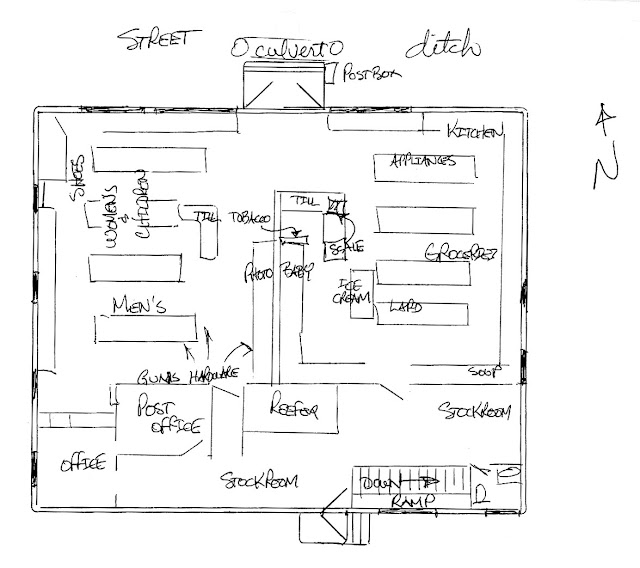 STREET
culvert
ditch
POSTBOX
KITCHEN
N
SHOES
APPLIANCES
WOMEN'S
&
CHILDREN
TILL
TOBACCO
TILL
SCALE
GROCERIES
PHOTO
BABY
ICE
CREAM
LARD
MEN'S
GUNS
HARDWARE
SOUP
POST
OFFICE
REEFER
STOCKROOM
OFFICE
STOCKROOM
DOWN
RAMP